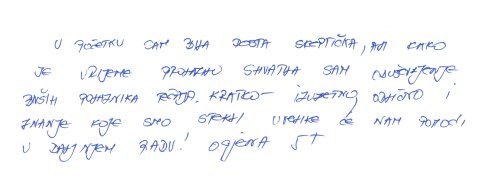 U POČETKU SAM BILA DOSTA SKEPTIČKA, ALI KAKO
JE VRIJEME PROLAZILO SHVATILA SAM ODUŠEVLJENJE
BIVŠIH POLAZNIKA TEČAJA. KRATKO - IZUZETNO, ODLIČNO I
ZNANJE KOJE SMO STEKLI UVELIKE ĆE NAM POMOĆI,
U DALJNJEM RADU! OCJENA 5+